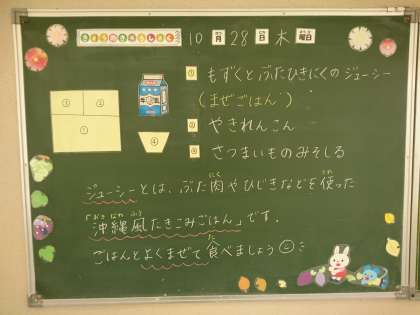 きょうのきゅうしょく
10月28日木曜日
① もずくとぶたひきにくのジューシー
(まぜごはん)
② やきれんこん
④ さつまいものみそしる
③ ②
①
④
ジューシーとは、ぶた肉やひじきなどを使った
「沖縄風たきこみごはん」です。
ごはんとよくまぜて食べましょう